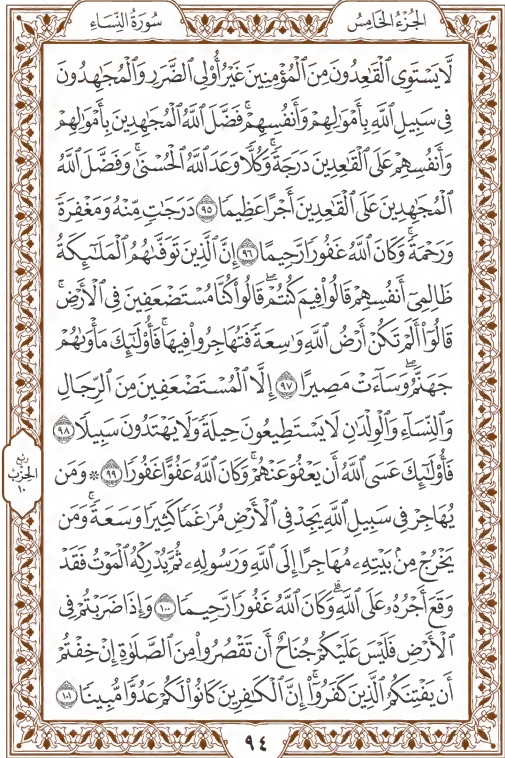 الجُزْءُ الخَامِسُ
سُورَةُ النِّسَاءِ
لَّا يَسْتَوِى ٱلْقَٰعِدُونَ مِنَ ٱلْمُؤْمِنِينَ غَيْرُ أُو۟لِى ٱلضَّرَرِ وَٱلْمُجَٰهِدُونَ
فِى سَبِيلِ ٱللَّهِ بِأَمْوَٰلِهِمْ وَأَنفُسِهِمْ ۚ فَضَّلَ ٱللَّهُ ٱلْمُجَٰهِدِينَ بِأَمْوَٰلِهِمْ
وَأَنفُسِهِمْ عَلَى ٱلْقَٰعِدِينَ دَرَجَةً ۚ وَكُلًّا وَعَدَ ٱللَّهُ ٱلْحُسْنَىٰ ۚ وَفَضَّلَ ٱللَّهُ
ٱلْمُجَٰهِدِينَ عَلَى ٱلْقَٰعِدِينَ أَجْرًا عَظِيمًا ٩٥ دَرَجَٰتٍ مِّنْهُ وَمَغْفِرَةً
وَرَحْمَةً ۚ وَكَانَ ٱللَّهُ غَفُورًا رَّحِيمًا ٩٦ إِنَّ ٱلَّذِينَ تَوَفَّىٰهُمُ ٱلْمَلَٰٓئِكَةُ
ظَالِمِىٓ أَنفُسِهِمْ قَالُوا۟ فِيمَ كُنتُمْ ۖ قَالُوا۟ كُنَّا مُسْتَضْعَفِينَ فِى ٱلْأَرْضِ ۚ
قَالُوٓا۟ أَلَمْ تَكُنْ أَرْضُ ٱللَّهِ وَٰسِعَةً فَتُهَاجِرُوا۟ فِيهَا ۚ فَأُو۟لَٰٓئِكَ مَأْوَىٰهُمْ
جَهَنَّمُ ۖ وَسَآءَتْ مَصِيرًا ٩٧ إِلَّا ٱلْمُسْتَضْعَفِينَ مِنَ ٱلرِّجَالِ
وَٱلنِّسَآءِ وَٱلْوِلْدَٰنِ لَا يَسْتَطِيعُونَ حِيلَةً وَلَا يَهْتَدُونَ سَبِيلًا ٩٨
فَأُو۟لَٰٓئِكَ عَسَى ٱللَّهُ أَن يَعْفُوَ عَنْهُمْ ۚ وَكَانَ ٱللَّهُ عَفُوًّا غَفُورًا ٩٩ ۞ وَمَن
يُهَاجِرْ فِى سَبِيلِ ٱللَّهِ يَجِدْ فِى ٱلْأَرْضِ مُرَٰغَمًا كَثِيرًا وَسَعَةً ۚ وَمَن
يَخْرُجْ مِنۢ بَيْتِهِۦ مُهَاجِرًا إِلَى ٱللَّهِ وَرَسُولِهِۦ ثُمَّ يُدْرِكْهُ ٱلْمَوْتُ فَقَدْ
وَقَعَ أَجْرُهُۥ عَلَى ٱللَّهِ ۗ وَكَانَ ٱللَّهُ غَفُورًا رَّحِيمًا ١٠٠ وَإِذَا ضَرَبْتُمْ فِى
ٱلْأَرْضِ فَلَيْسَ عَلَيْكُمْ جُنَاحٌ أَن تَقْصُرُوا۟ مِنَ ٱلصَّلَوٰةِ إِنْ خِفْتُمْ
أَن يَفْتِنَكُمُ ٱلَّذِينَ كَفَرُوٓا۟ ۚ إِنَّ ٱلْكَٰفِرِينَ كَانُوا۟ لَكُمْ عَدُوًّا مُّبِينًا ١٠١
ربع
الحزب
١٠
٩٤